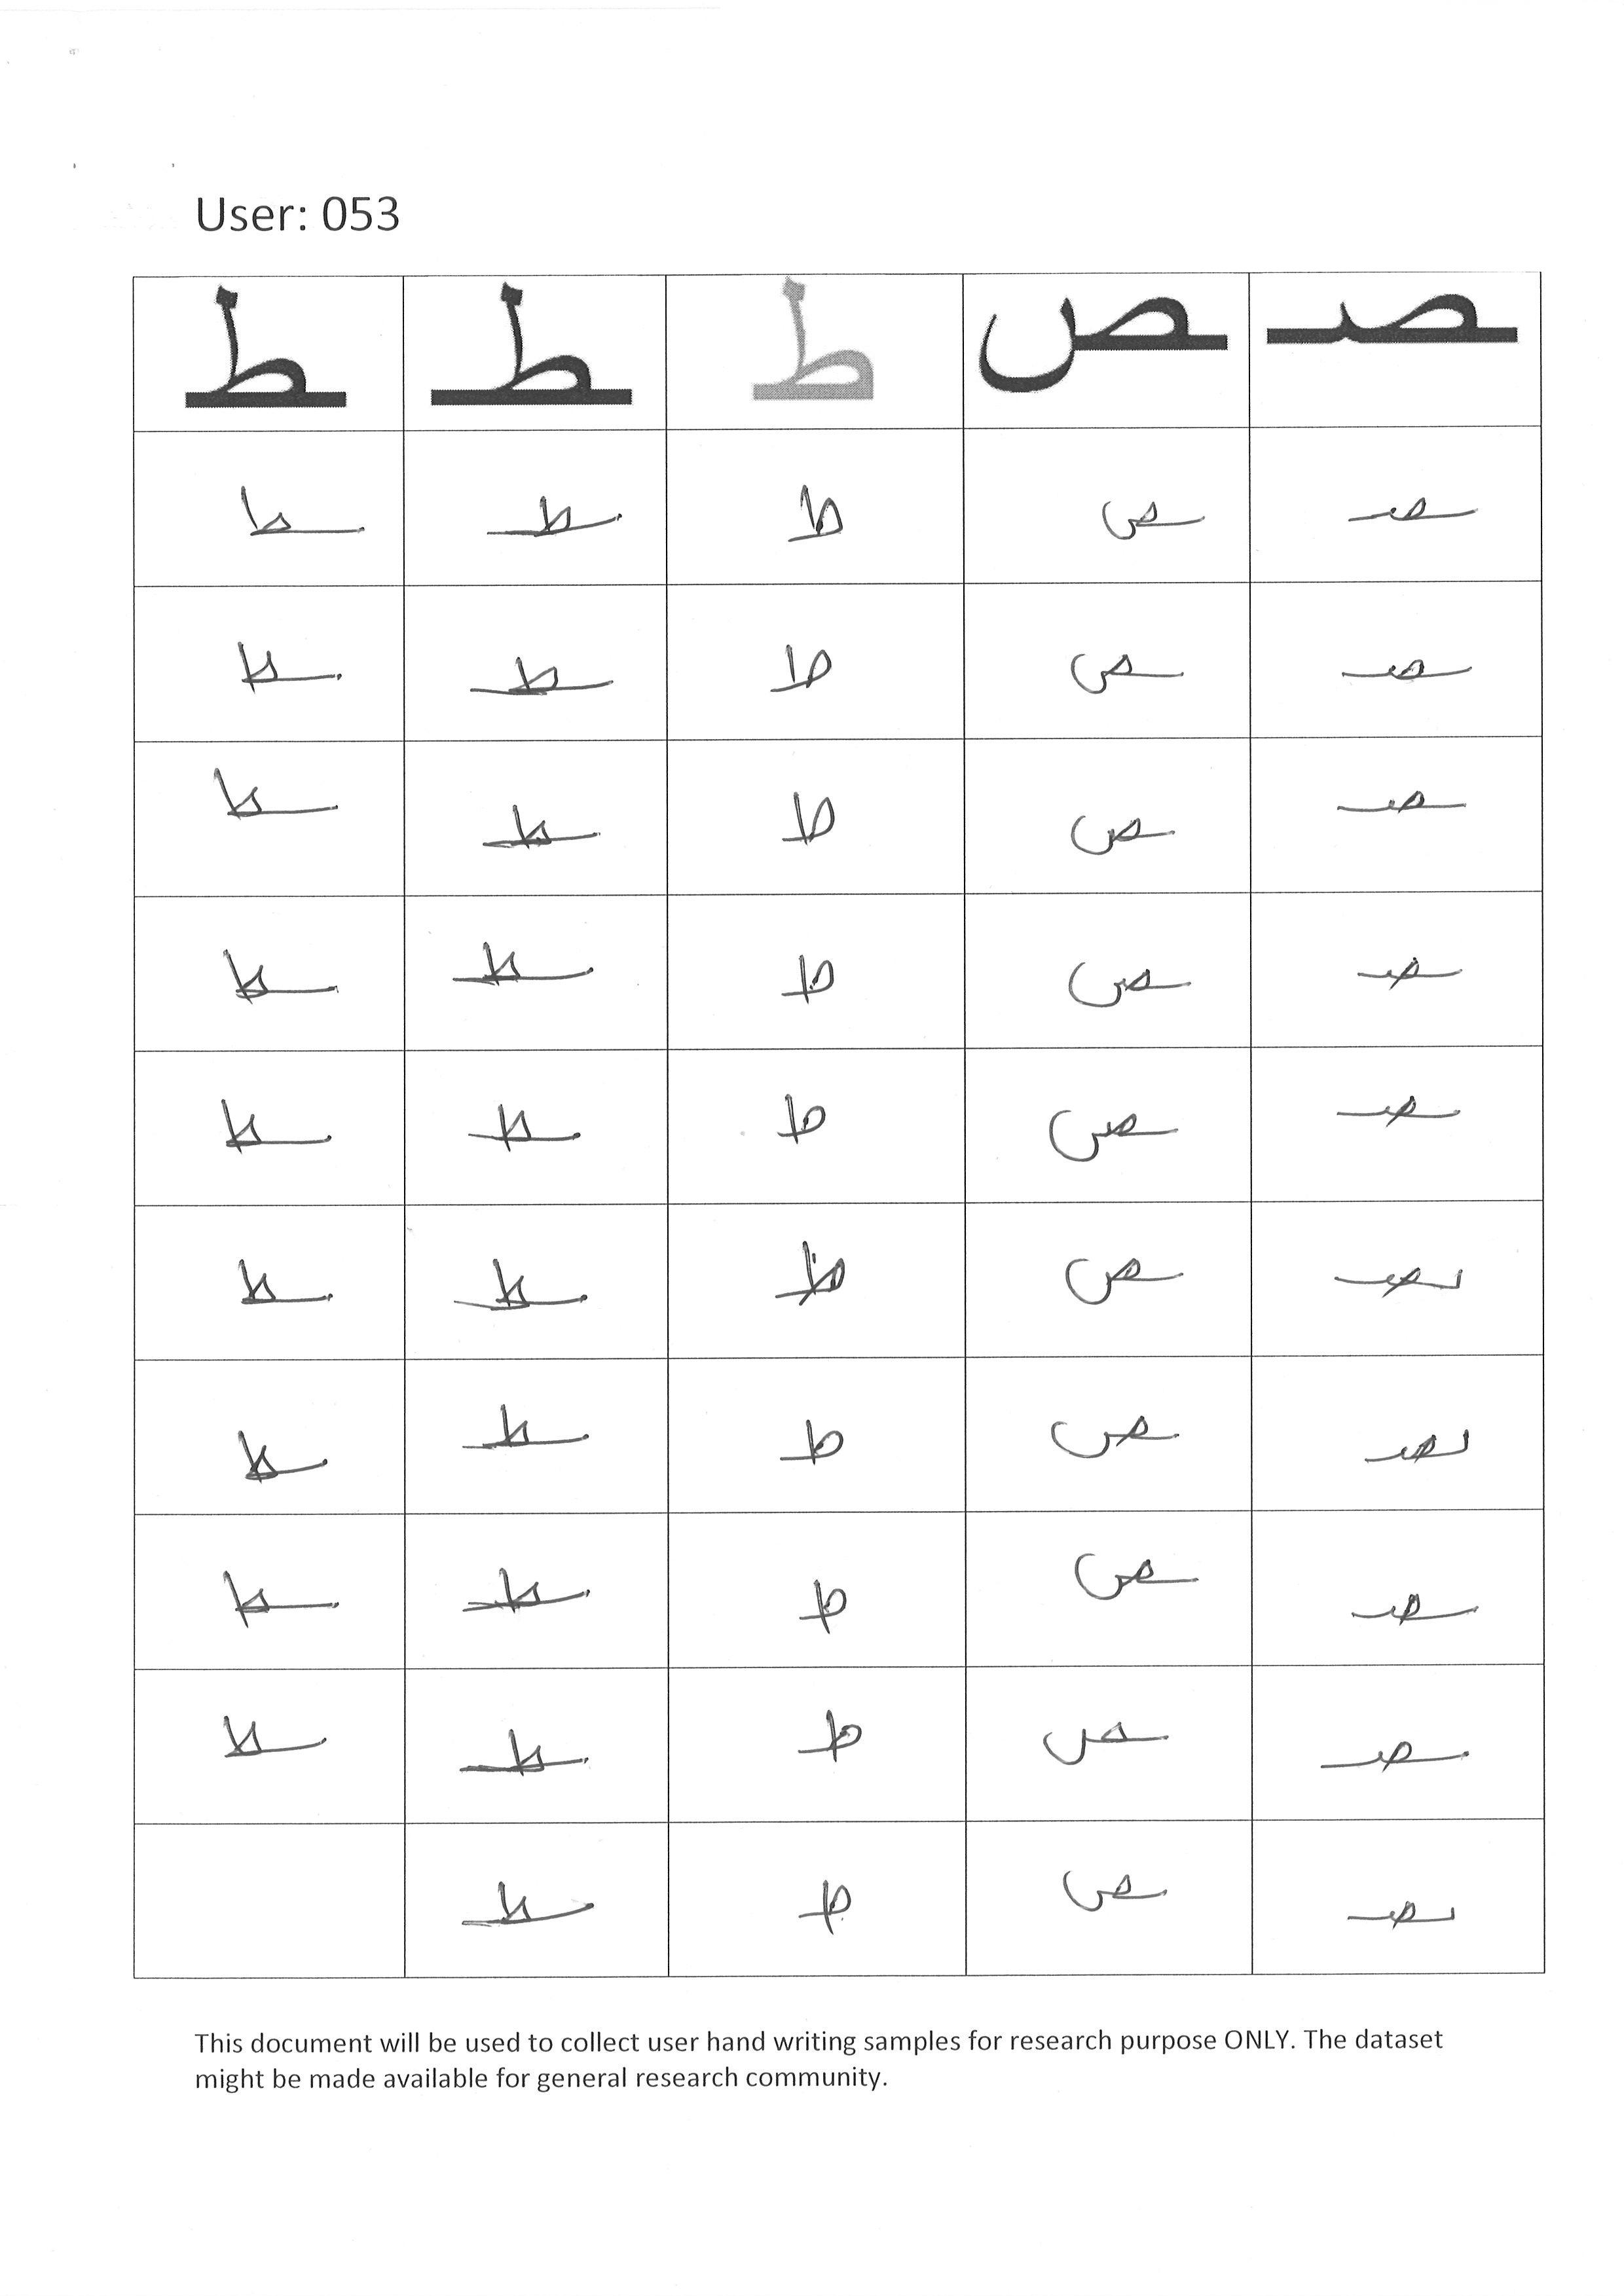 User: 053
ـصـ ـص طـ ـطـ ـط
ـصـ ـص طـ ـطـ ـط
ـصـ ـص طـ ـطـ ـط
ـصـ ـص طـ ـطـ ـط
ـصـ ـص طـ ـطـ ـط
ـصـ ـص طـ ـطـ ـط
ـصـ ـص طـ ـطـ ـط
ـصـ ـص طـ ـطـ ـط
ـصـ ـص طـ ـطـ ـط
ـصـ ـص طـ ـطـ ـط
ـصـ ـص طـ ـطـ
This document will be used to collect user hand writing samples for research purpose ONLY. The dataset
might be made available for general research community.